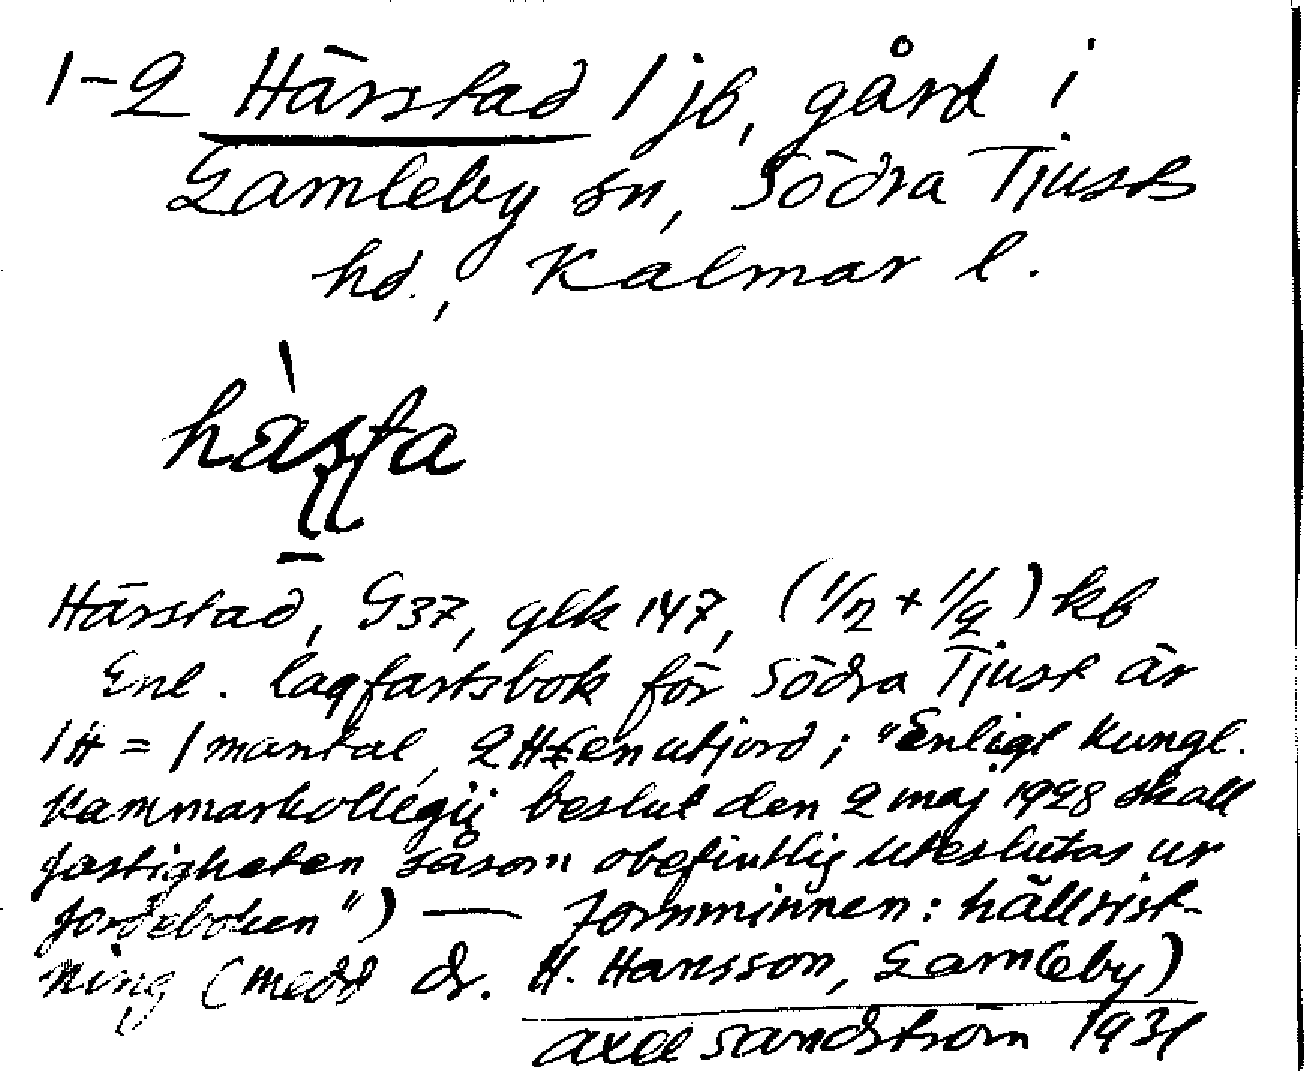 1-2 Härstad 1 jb, gård i
Gamleby sn, Södra Tjusts
hd., Kalmar l.
Härstad, G37, glk 147, (1/2 + 1/2) kb
Enl. lagfartsbok för Södra Tjust är
1H = 1 mantal, 2H en utjord; "Enligt Kungl.
Kammarkollegii beslut den 2 maj 1928 skall
fastigheten såsom obefintlig uteslutas ur
Jordeboken") — Fornminnen: hällrist-
ning (medd dr. H. Hansson, Gamleby)
Axel Sandström 1931